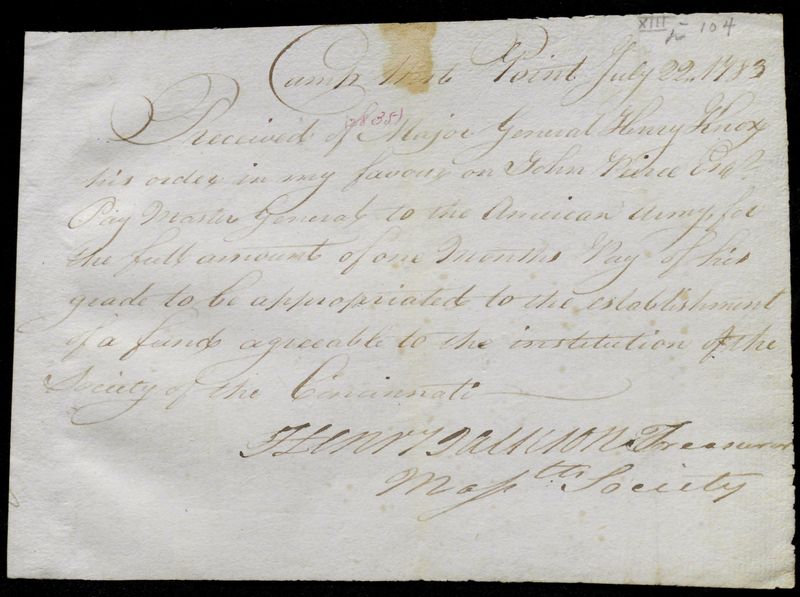 XIII 104
Camp West Point July 22. 1783
(7835)
Received of Major General Henry Knox
his order in my favour on John Pierce Esqr.
Pay Master General to the American Army, for
the full amount of one Months Pay of his
grade to be appropriated to the establishment
of a fund agreeable to the institution of the
Society of the Cincinnati
HENRY JACKSON Treasurer
Masstts Society